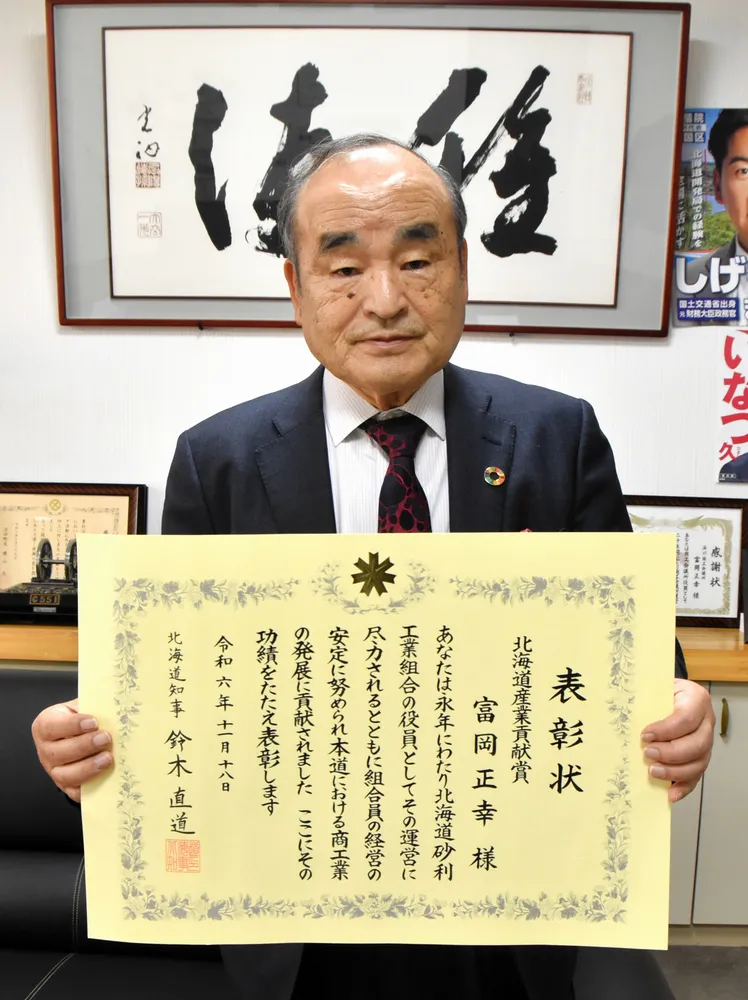 表彰状
北海道産業貢献賞
富岡正幸 様
あなたは永年にわたり北海道砂利
工業組合の役員としてその運営に
尽力されるとともに組合員の経営の
安定に努められ本道における商工業
の発展に貢献されました ここにその
功績をたたえ表彰します
令和六年十一月十八日
北海道知事 鈴木直道
北海道開発局での経験を
しげ
国土交通省出身
元 財務大臣政務官
いなつ
久
感謝状
富岡正幸 様
C551